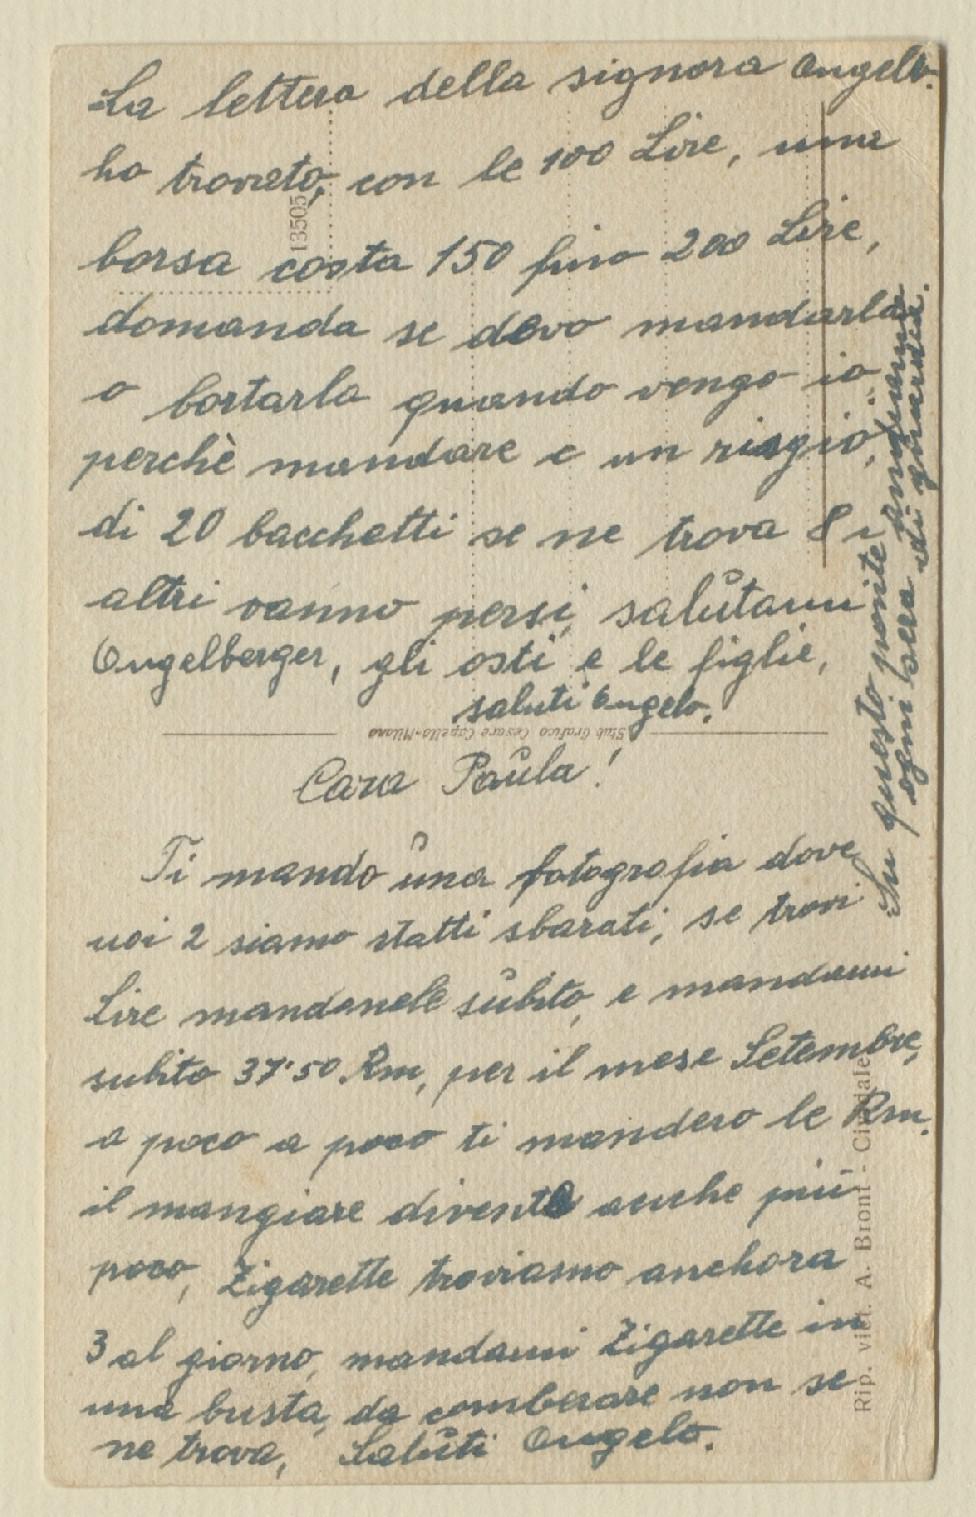 La lettera della signora Angelo.
ho trovato, con le 100 Lire, una
borsa costa 150 fino 200 Lire,
domanda se devo mandarla
o bortarla quando vengo io
perchè mandare e un risgio,
di 20 bacchetti se ne trova 8 i
altri vanno persi, salutami
Engelberger, gli osti e le figlie,
saluti Angelo.
Stab Grafico Cesare Capello-Milano
13505
Cara Paula!
Ti mando una fotografia dove
noi 2 siamo statti sbarati, se trovi
Lire mandamele subito, e mandami
subito 37·50 Rm, per il mese Setembre,
a poco a poco ti mandero le Rm.
il mangiare diventa anche più
poco, Zigarette troviamo anchora
3 al giorno, mandami Zigarette in
una busta, da comberare non se
ne trova, Saluti Angelo.
Su questo ponte andiamo
ogni sera di guardia.
Rip. viet. A. Bront - Cividale